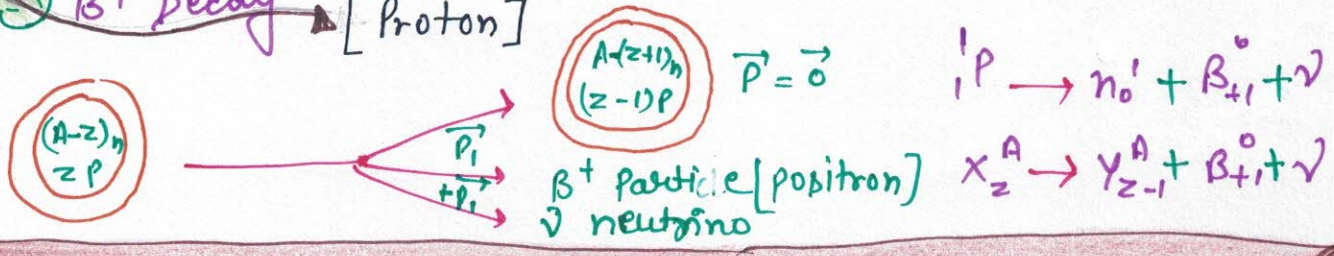 β⁺ Decay → [Proton]
(A-z)n
z P
A-(z+1)n
(z-1)P
P⃗ = 0⃗
P₁⃗
+P₁⃗
β⁺ Particle [positron]
ν neutrino
₁¹P → n₀¹ + β₊₁⁰ + ν
X_z^A → Y_{z-1}^A + β₊₁⁰ + ν